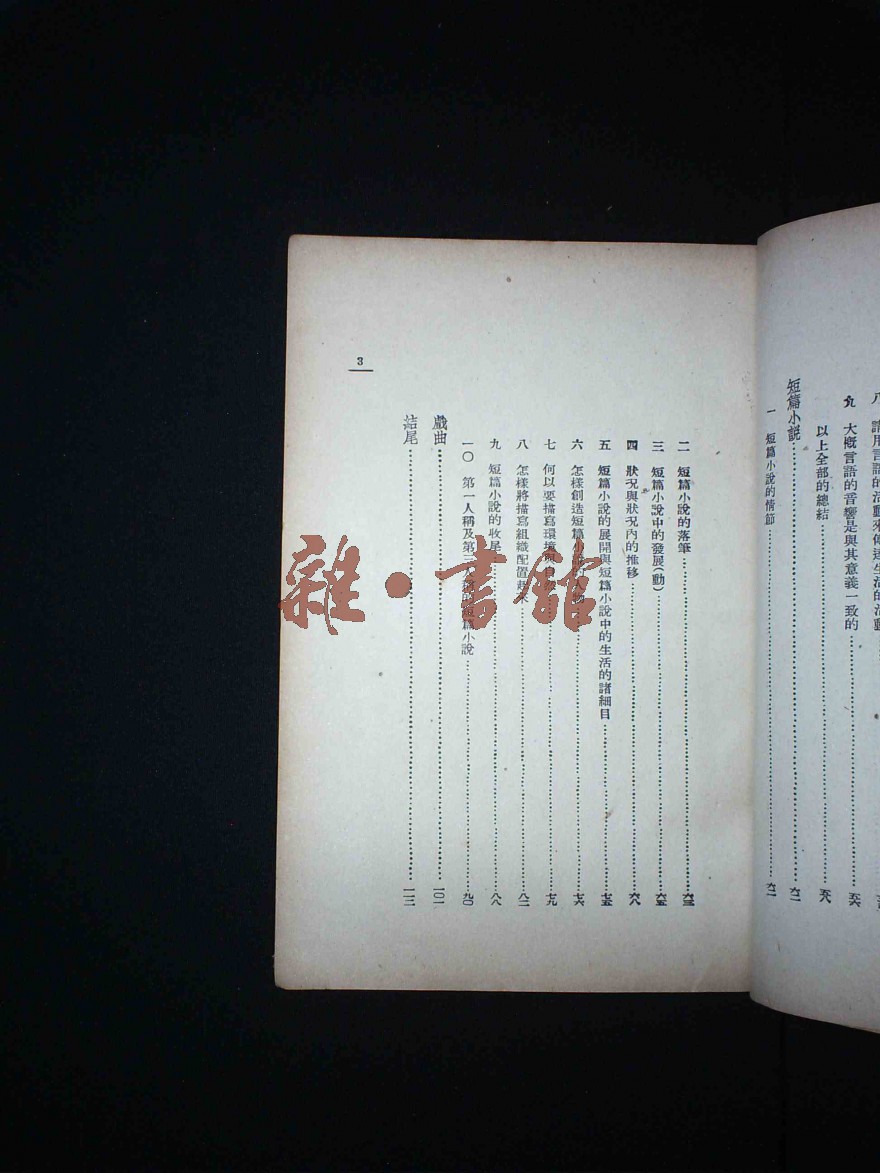 九 大概言語的音響是與其意義一致的……五六
以上全部的總結……五八
短篇小說……六二
一 短篇小說的情節……六二
二 短篇小說的落筆……六三
三 短篇小說中的發展(動)……六五
四 狀況與狀況內的推移……六八
五 短篇小說的展開與短篇小說中的生活的諸細目……七五
六 怎樣創造短篇小說的人物……七六
七 何以要描寫環境與自然……七九
八 怎樣將描寫組織配置起來……八二
九 短篇小說的收尾……八八
一〇 第一人稱及第三人稱的短篇小說……九〇
戲曲……一〇一
結尾……一一三
3
雜·書館